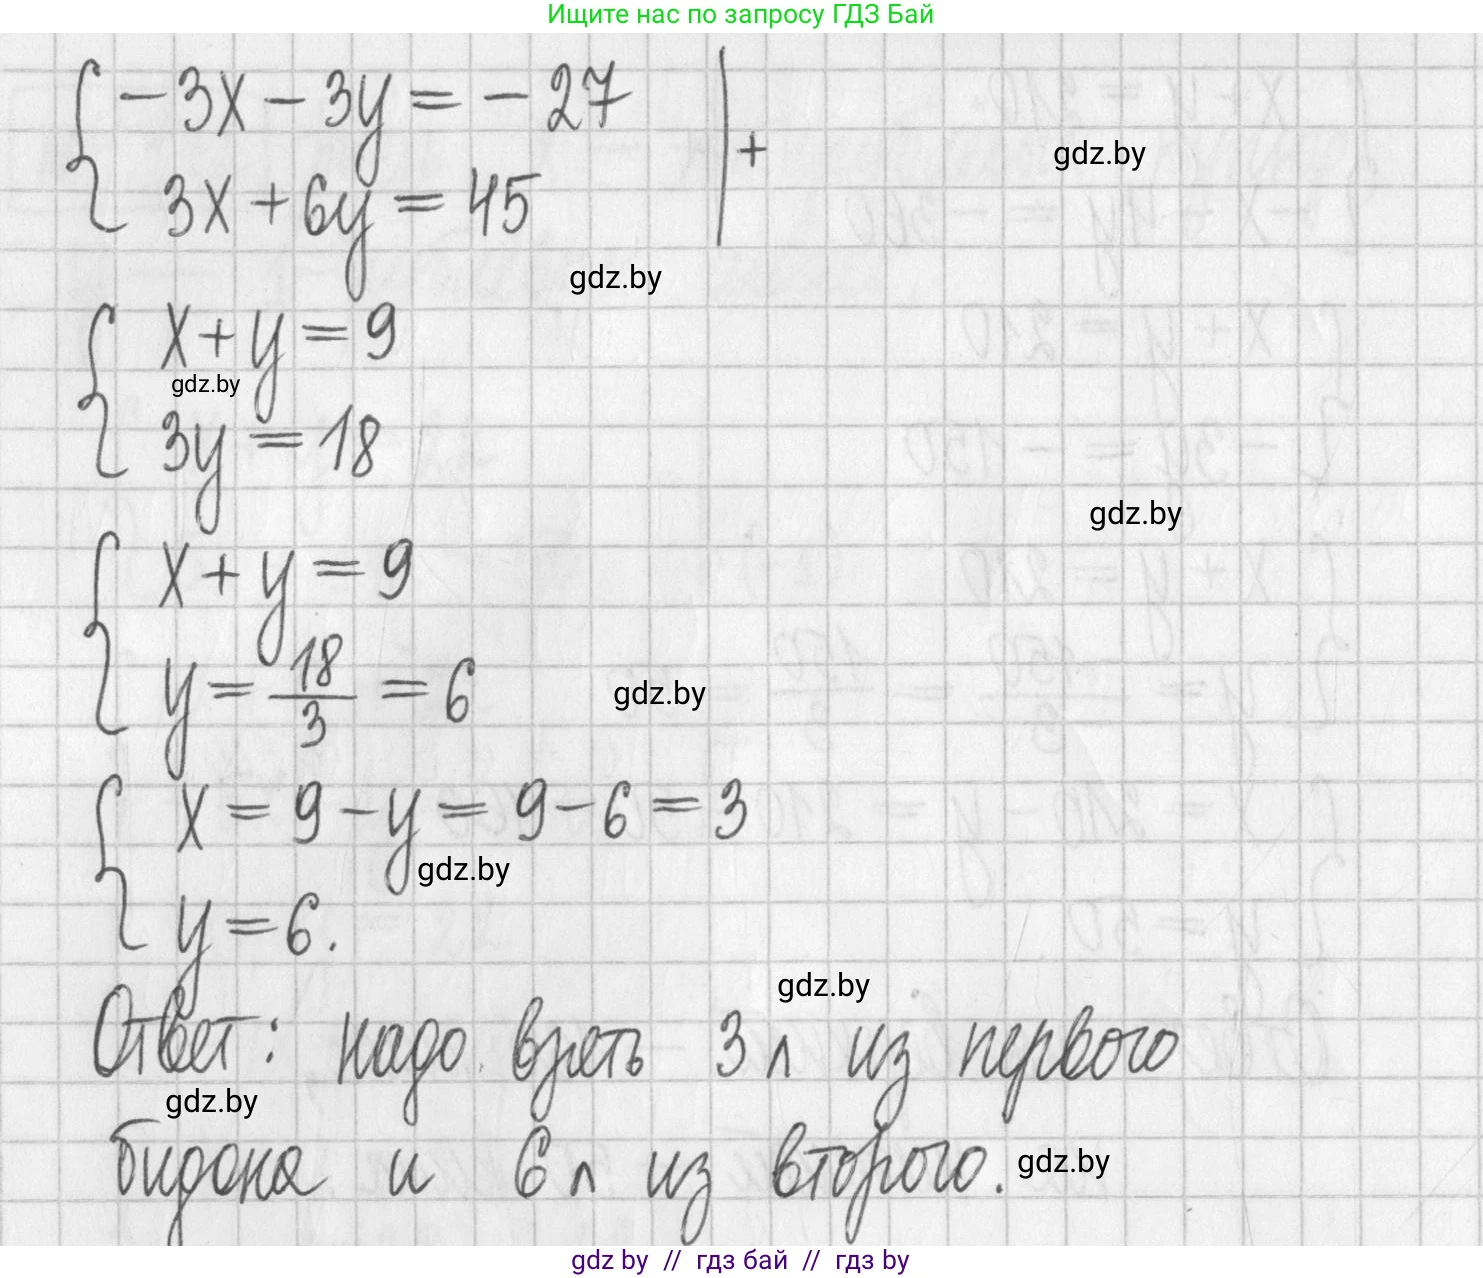 Ищите нас по запросу ГДЗ Бай
-3x - 3y = -27
+
gdz.by
3x + 6y = 45
gdz.by
x + y = 9
gdz.by
3y = 18
gdz.by
x + y = 9
y = 18/3 = 6
gdz.by
x = 9 - y = 9 - 6 = 3
gdz.by
y = 6.
gdz.by
Ответ: надо взять 3 л из первого
gdz.by
бидона и 6 л из второго.
gdz.by
gdz by // гдз бай // гдз by